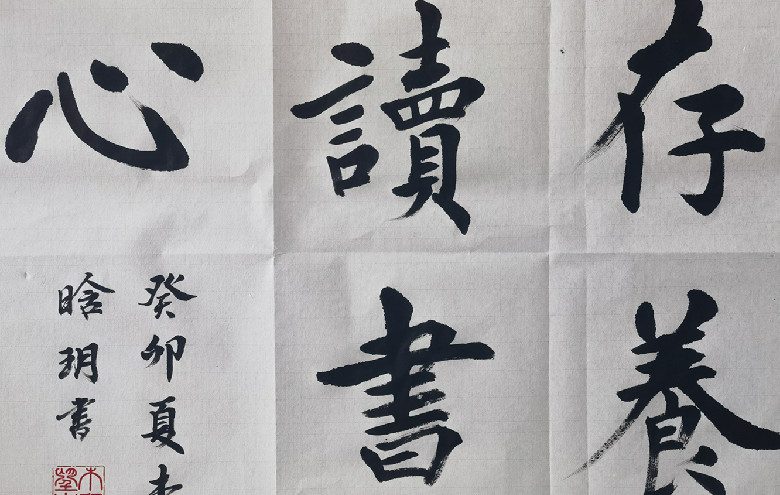 存養
讀書
心
癸卯夏
晗玥書